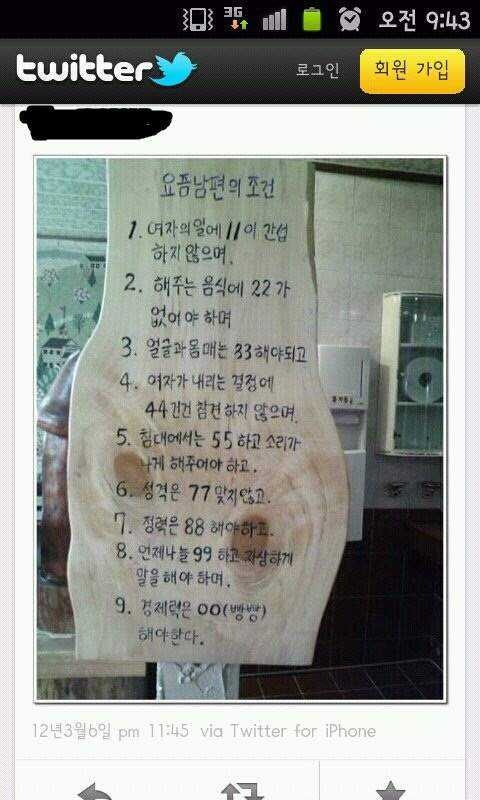 3G
오전 9:43
twitter
로그인
회원 가입
요즘남편의 조건
1. 여자의일에 11이 간섭
하지 않으며.
2. 해주는 음식에 22가
없어야 하며
3. 얼굴과몸매는 33해야되고
4. 여자가 내리는 결정에
44건건 참견하지 않으며.
5. 침대에서는 55 하고 소리가
나게 해주어야 하고.
6. 성격은 77 맞지않고.
7. 정력은 88 해야하고.
8. 언제나늘 99 하고 자상하게
말을 해야 하며.
9. 경제력은 00(빵빵)
해야한다.
12년3월6일 pm 11:45 via Twitter for iPhone